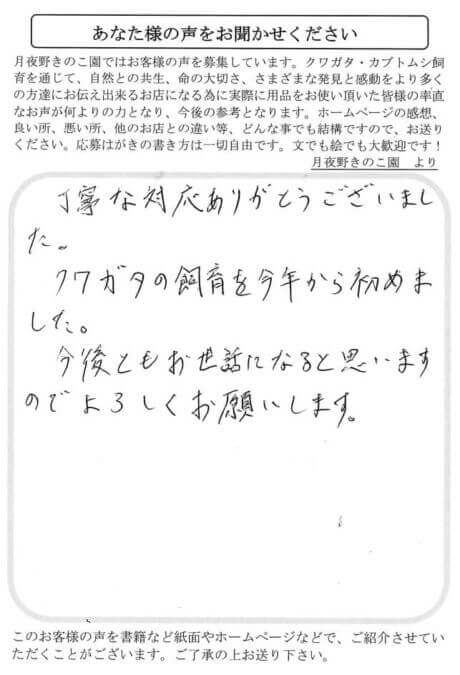 あなた様の声をお聞かせください
月夜野きのこ園ではお客様の声を募集しています。クワガタ・カブトムシ飼
育を通じて、自然との共生、命の大切さ、さまざまな発見と感動をより多く
の方達にお伝え出来るお店になる為に実際に用品をお使い頂いた皆様の率直
なお声が何よりの力となり、今後の参考となります。ホームページの感想、
良い所、悪い所、他のお店との違い等、どんな事でも結構ですので、お送り
ください。応募はがきの書き方は一切自由です。文でも絵でも大歓迎です！
月夜野きのこ園　より
丁寧な対応ありがとうございまし
た。
クワガタの飼育を今年から初めま
した。
今後ともお世話になると思います
のでよろしくお願いします。
このお客様の声を書籍など紙面やホームページなどで、ご紹介させてい
ただくことがございます。ご了承の上お送り下さい。